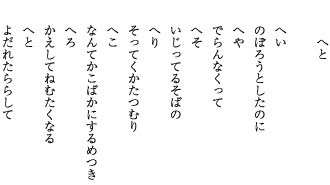 へと
へい
のぼろうとしたのに
へや
でらんなくって
へそ
いじってるそばの
へり
そってくかたつむり
へこ
なんてかこばかにするめつき
へろ
かえしてねむたくなる
へと
よだれたららして